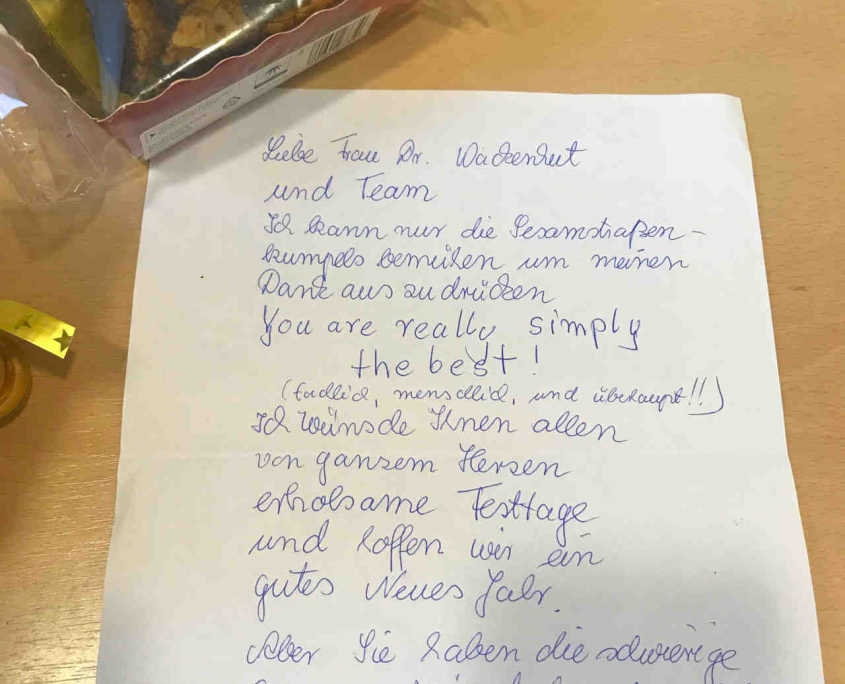 Liebe Frau Dr. Wackenhut
und Team
Ich kann nur die Sesamstraßen-
kumpels bemühen um meinen
Dank auszudrücken
You are really simply
the best!
(fachlich, menschlich, und überhaupt!!)
Ich wünsche Ihnen allen
von ganzem Herzen
erholsame Festtage
und hoffen wir ein
gutes Neues Jahr.
Aber Sie haben die schwierige